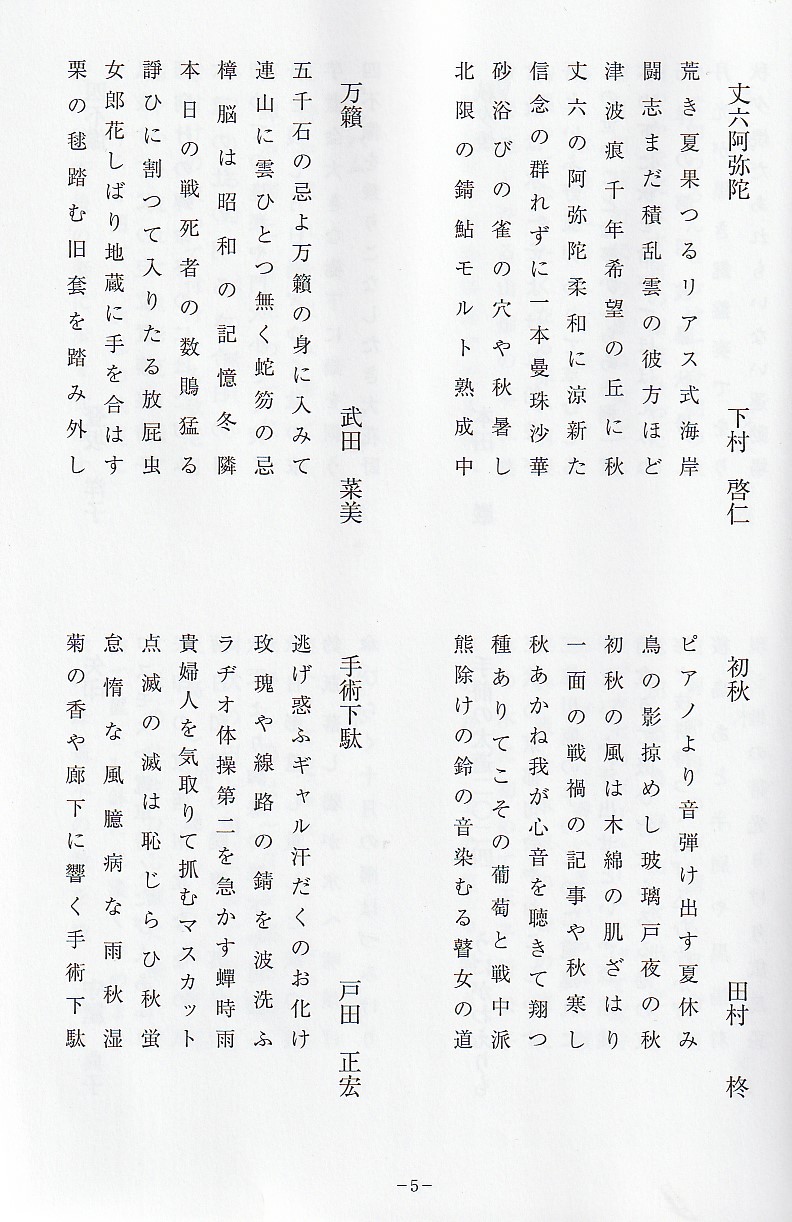 丈六阿弥陀
下村 啓仁
荒き夏果つるリアス式海岸
闘志まだ積乱雲の彼方ほど
津波痕千年希望の丘に秋
丈六の阿弥陀柔和に涼新た
信念の群れずに一本曼珠沙華
砂浴びの雀の穴や秋暑し
北限の錆鮎モルト熟成中
初秋
田村 柊
ピアノより音弾け出す夏休み
鳥の影掠めし玻璃戸夜の秋
初秋の風は木綿の肌ざはり
一面の戦禍の記事や秋寒し
秋あかね我が心音を聴きて翔つ
種ありてこその葡萄と戦中派
熊除けの鈴の音染むる瞽女の道
万籟
武田 菜美
五千石の忌よ万籟の身に入みて
連山に雲ひとつ無く蛇笏の忌
樟脳は昭和の記憶冬隣
本日の戦死者の数鵙猛る
諍ひに割つて入りたる放屁虫
女郎花しばり地蔵に手を合はす
栗の毬踏む旧套を踏み外し
手術下駄
戸田 正宏
逃げ惑ふギャル汗だくのお化け
玫瑰や線路の錆を波洗ふ
ラヂオ体操第二を急かす蟬時雨
貴婦人を気取りて抓むマスカット
点滅の滅は恥じらひ秋蛍
怠惰な風臆病な雨秋湿
菊の香や廊下に響く手術下駄
−5−